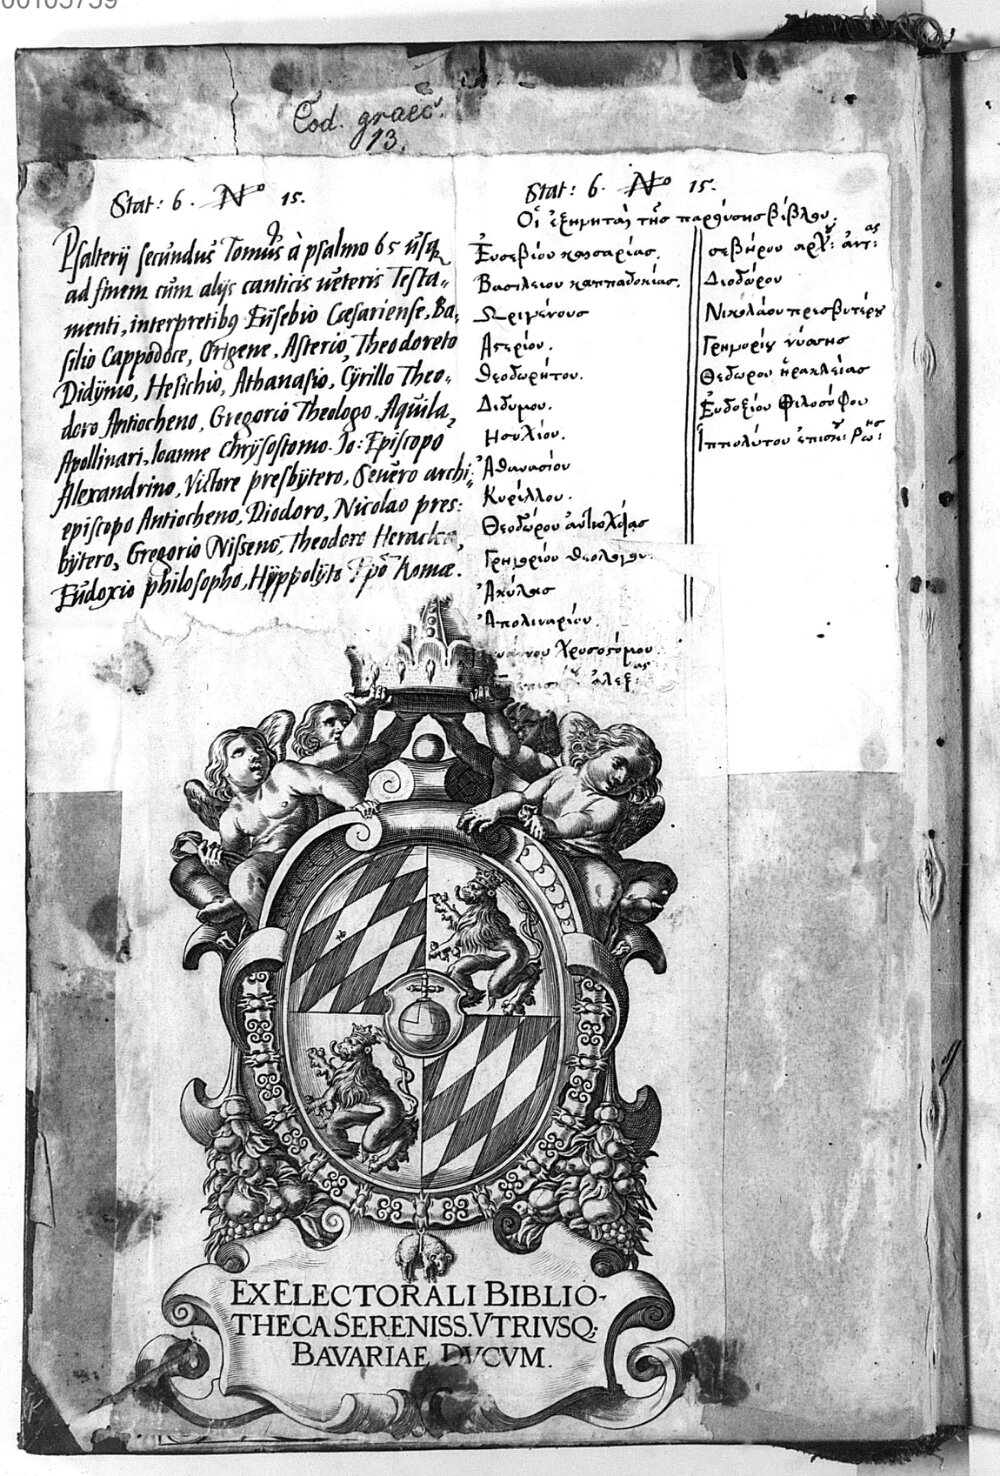 00105759
Cod. graec.
13.
Stat: 6. No 15.
Psalterij secundus Tomus à psalmo 65 usq
ad finem cum alijs canticis ueteris Testa-
menti, interpretibg Eusebio Cæsariense, Ba,
silio Cappodoce, Origene, Asterio, Theodoreto
Didÿmo, Hesichio, Athanasio, Cÿrillo Theo-
doro Antiocheno, Gregorio Theologo. Aquila,
Apollinari, Ioanne Chrÿsostomo. Io: Episcopo
Alexandrino, Victore presbÿtero, Seuero archi,
episcopo Antiocheno, Diodoro, Nicolao pres:
bÿtero, Gregorio Nisseno, Theodoro Heraclea,
Eudoxio philosopho, Hÿppolÿto Epõ Romæ.
Stat: 6. No 15.
Οἱ ἐξηγηταὶ τῆς παρούσης βίβλου.
Ἐυσεβίου καισαρίας.
Βασιλείου καππαδοκίας.
Ὠριγένους
Ἀστερίου.
Θεοδωρήτου.
Διδυμου.
Ησυχίου.
Ἀθανασίου
Κυρίλλου.
Θεοδώρου ἀντιοχείας
Γρηγορίου θεολόγου.
Ἀκύλας
Ἀπολιναρίου.
Χρυσοστόμου.
ἀλεξ:ας
σεβήρου αρχ: ἀντ:ας
Διοδώρου
Νικόλάου πρεσβυτέρου
Γρηγορίου νύσσης
Θεδώρου ἡρακλείας
Ἐυδοξίου Φιλοσόφου
Ἱππολύτου ἐπισκ: Ρώ:ης
EX ELECTORALI BIBLIO-
THECA SERENISS. VTRIVSQ:
BAVARIAE DVCVM.